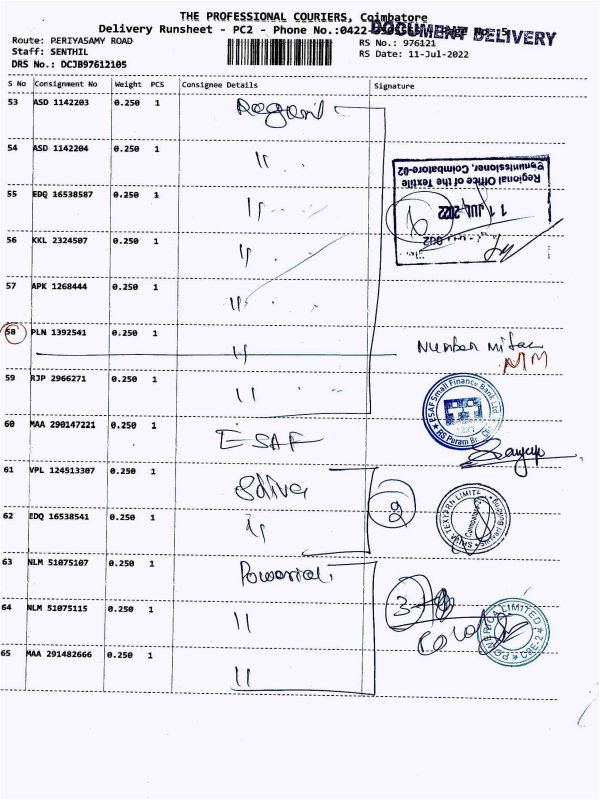 THE PROFESSIONAL COURIERS, Coimbatore
Delivery Runsheet - PC2 - Phone No.:0422-
DOCUMENT DELIVERY
Route: PERIYASAMY ROAD
RS No.: 976121
Staff: SENTHIL
RS Date: 11-Jul-2022
DRS No.: DCJB97612105
S No Consignment No Weight PCS Consignee Details Signature
53 ASD 1142203 0.250 1
54 ASD 1142204 0.250 1 "
Regional Office of the Textile
Commissioner, Coimbatore-02
11 JUL 2022
55 EDQ 16538587 0.250 1 "
56 KKL 2324507 0.250 1 "
57 APK 1268444 0.250 1 "
58 PLN 1392541 0.250 1 "
Number
59 RJP 2966271 0.250 1 "
ESAF Small Finance Bank Ltd
RS Puram
60 MAA 290147221 0.250 1 ESAF
61 VPL 124513307 0.250 1
2
62 EDQ 16538541 0.250 1 "
63 NLM 51075107 0.250 1
3
64 NLM 51075115 0.250 1 "
LIMITED
CBE-2
65 MAA 291482666 0.250 1 "